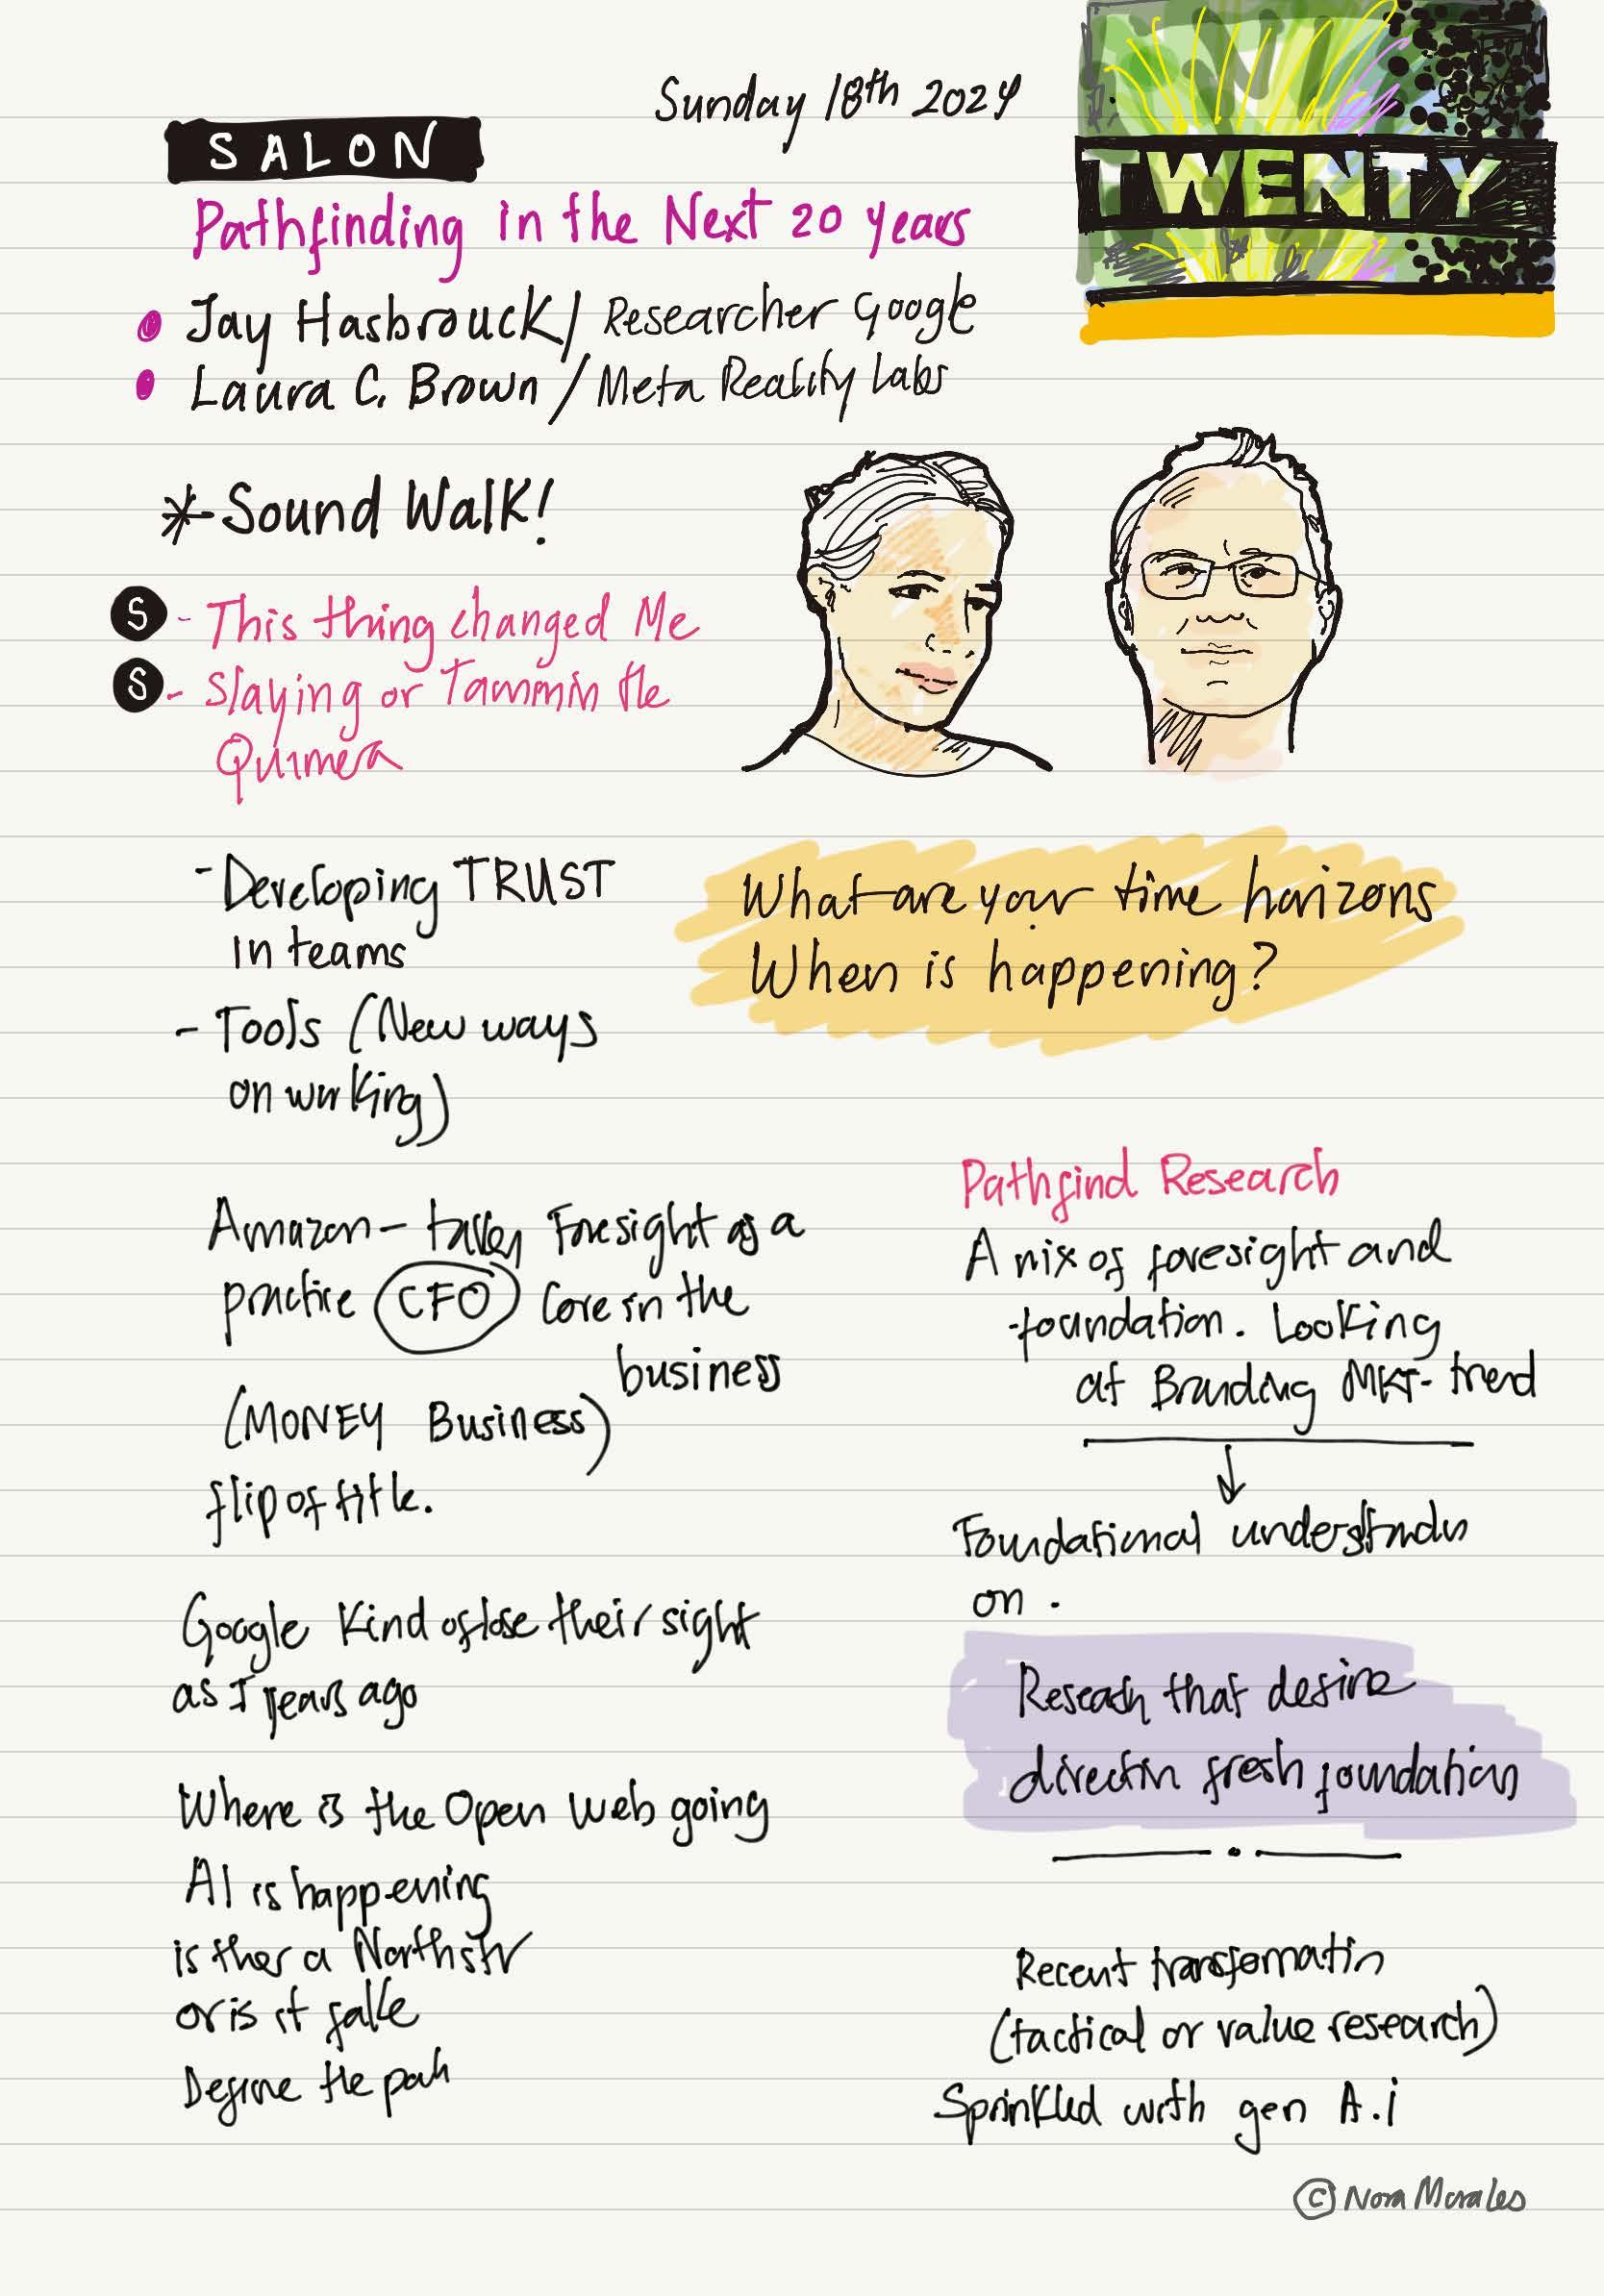 Sunday 18th 2024
TWENTY
SALON
Pathfinding in the Next 20 years
Jay Hasbrouck / Researcher Google
Laura C. Brown / Meta Reality Labs
* Sound Walk!
S - This thing changed Me
S - Slaying or Tammin the
Quimera
- Developing TRUST
in teams
- Tools (New ways
on working)
What are your time horizons
When is happening?
Amazon - Foresight as a
practice CFO Core in the
business
(MONEY Business)
flip of title.
Google Kind of lose their sight
as 5 years ago
Where is the Open Web going
AI is happening
is ther a Northstr
or is it fake
Define the path
Pathfind Research
A mix of foresight and
foundation. Looking
at Branding MKT- trend
↓
Foundational
on .
Reseach that
direction fresh foundations
Recent transformatin
(tactical or value research)
Sprinkled with gen A.i
© Nora Morales